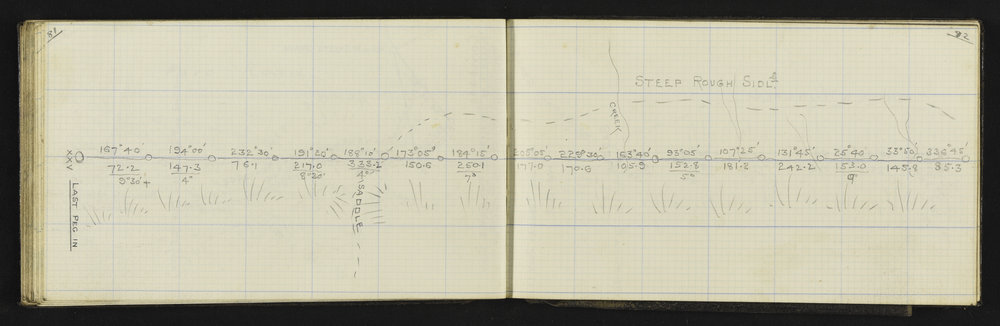 81
82
STEEP ROUGH SIDLG
CREEK
167°40' 194°00' 232°30' 191°20' 188°10' 173°05' 184°15' 205°05' 228°30' 163°40' 93°05' 107°25' 131°45' 25°40 33°50' 336°45'
72.2 147.3 76.1 217.0 323.2 150.6 250.1 177.0 170.6 105.9 152.8 181.2 242.2 153.0 145.8 85.3
4° 4° 5° 9°
XXV LAST PEG IN
SADDLE